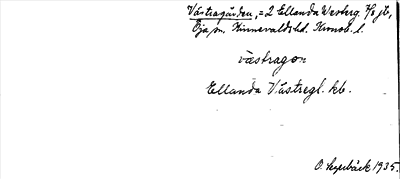 Västragården, = 2 Ellanda Westerg. 7/8 jb,
Öja sn. Kinnevalds hd. Kronob. l.
västragon
Ellanda Västregl. kb.
O. Lagerbäck 1935.